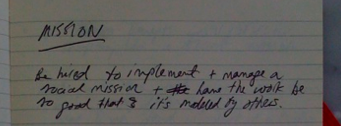 MISSION
Be hired to implement + manage a
social mission + have the work be
so good that it's modeled by others.